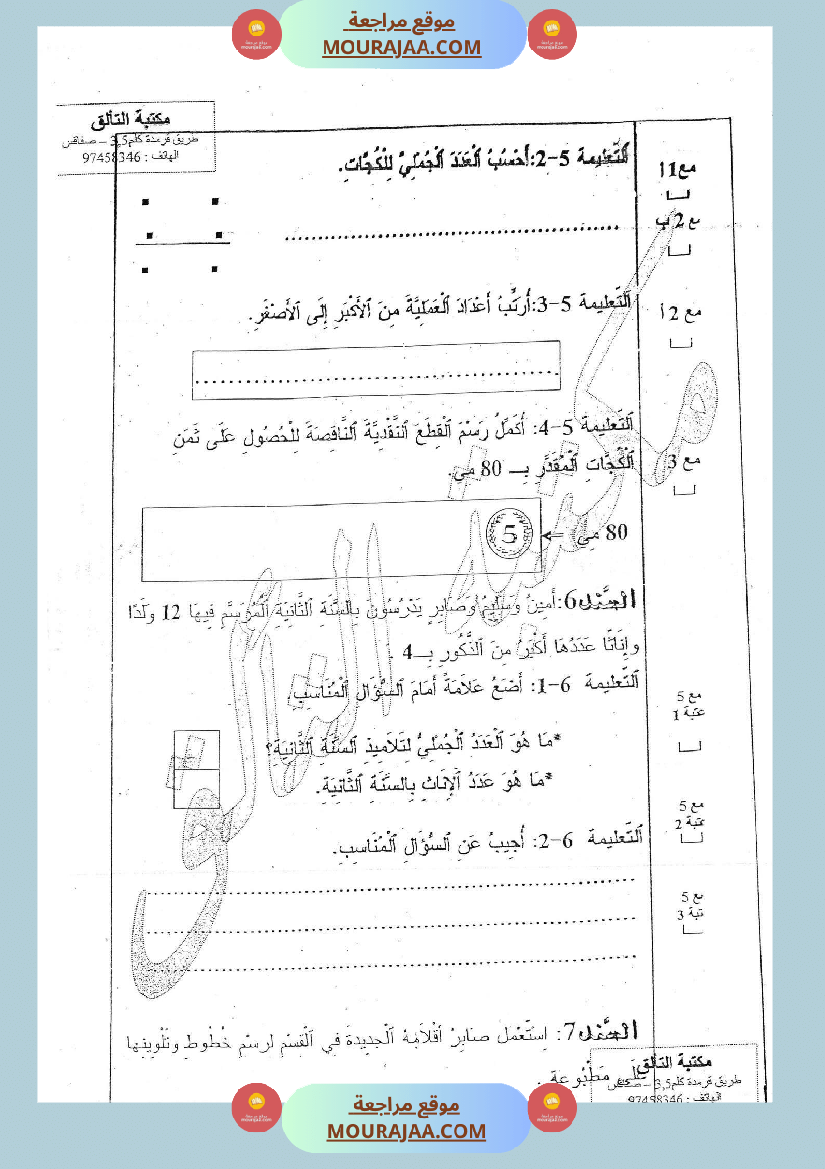 موقع مراجعة
MOURAJAA.COM
مكتبة التألق
طريق قرمدة كلم3,5 – صفاقس
الهاتف : 97458346
اَلتَّعْلِيمة 5–2:أَحْسُبُ ٱلْعَدَدَ ٱلْجُمْلِيَّ لِلْكُجَّاتِ.
مع1أ
مع 2 ب
..................................................
اَلتَّعْلِيمة 5–3:أُرَتِّبُ أَعْدَادَ ٱلْعَمَلِيَّةَ مِنَ ٱلْأَكْبَرِ إِلَى ٱلْأَصْغَرِ.
مع 2 أ
..................................................
اَلتَّعْلِيمة 5–4: أُكَمِّلُ رَسْمَ ٱلْقِطَعَ ٱلنَّقْدِيَّةَ ٱلنَّاقِصَةَ لِلْحُصُولِ عَلَى ثَمَنِ
ٱلْكُجَّاتِ ٱلْمُقَدَّرِ بِــ 80 مي.
مع 3
80 مِي ← 5
السَّنَد6:أَمِينُ وَسَلِيمُ وَصَابِرٍ يَدْرُسُونَ بِالسَّنَةِ ٱلثَّانِيَةِ ٱلْمُرَسَّمِ فِيهَا 12 وَلَدًا
وإِنَاثًا عَدَدُهَا أَكْبَرُ مِنَ ٱلذُّكُورِ بِــ4 .
اَلتَّعْلِيمة 6–1: أَضَعُ عَلَامَةً أَمَامَ ٱلسُّؤَالِ ٱلْمُنَاسِبِ.
مع 5
عتبة 1
*مَا هُوَ ٱلْعَدَدُ ٱلْجُمْلِيُّ لِتَلَامِيذِ ٱلسَّنَةِ ٱلثَّانِيَةِ؟
*مَا هُوَ عَدَدُ ٱلْإِنَاثِ بِالسَّنَةِ ٱلثَّانِيَةِ.
مع 5
عتبة 2
اَلتَّعْلِيمة 6–2: أُجِيبُ عَنِ ٱلسُّؤَالِ ٱلْمُنَاسِبِ.
..................................................
مع 5
عتبة 3
..................................................
..................................................
السَّنَد7: اِسْتَعْمل صابِرْ أَقْلَامَهُ ٱلْجَدِيدَةَ فِي ٱلْقِسْمِ لرسْمِ خُطُوطٍ وتَلْوِينِها
على مَطْبُوعَةٍ .
مكتبة التألق
طريق قرمدة كلم3,5 – صفاقس
الهاتف : 97458346
موقع مراجعة
MOURAJAA.COM